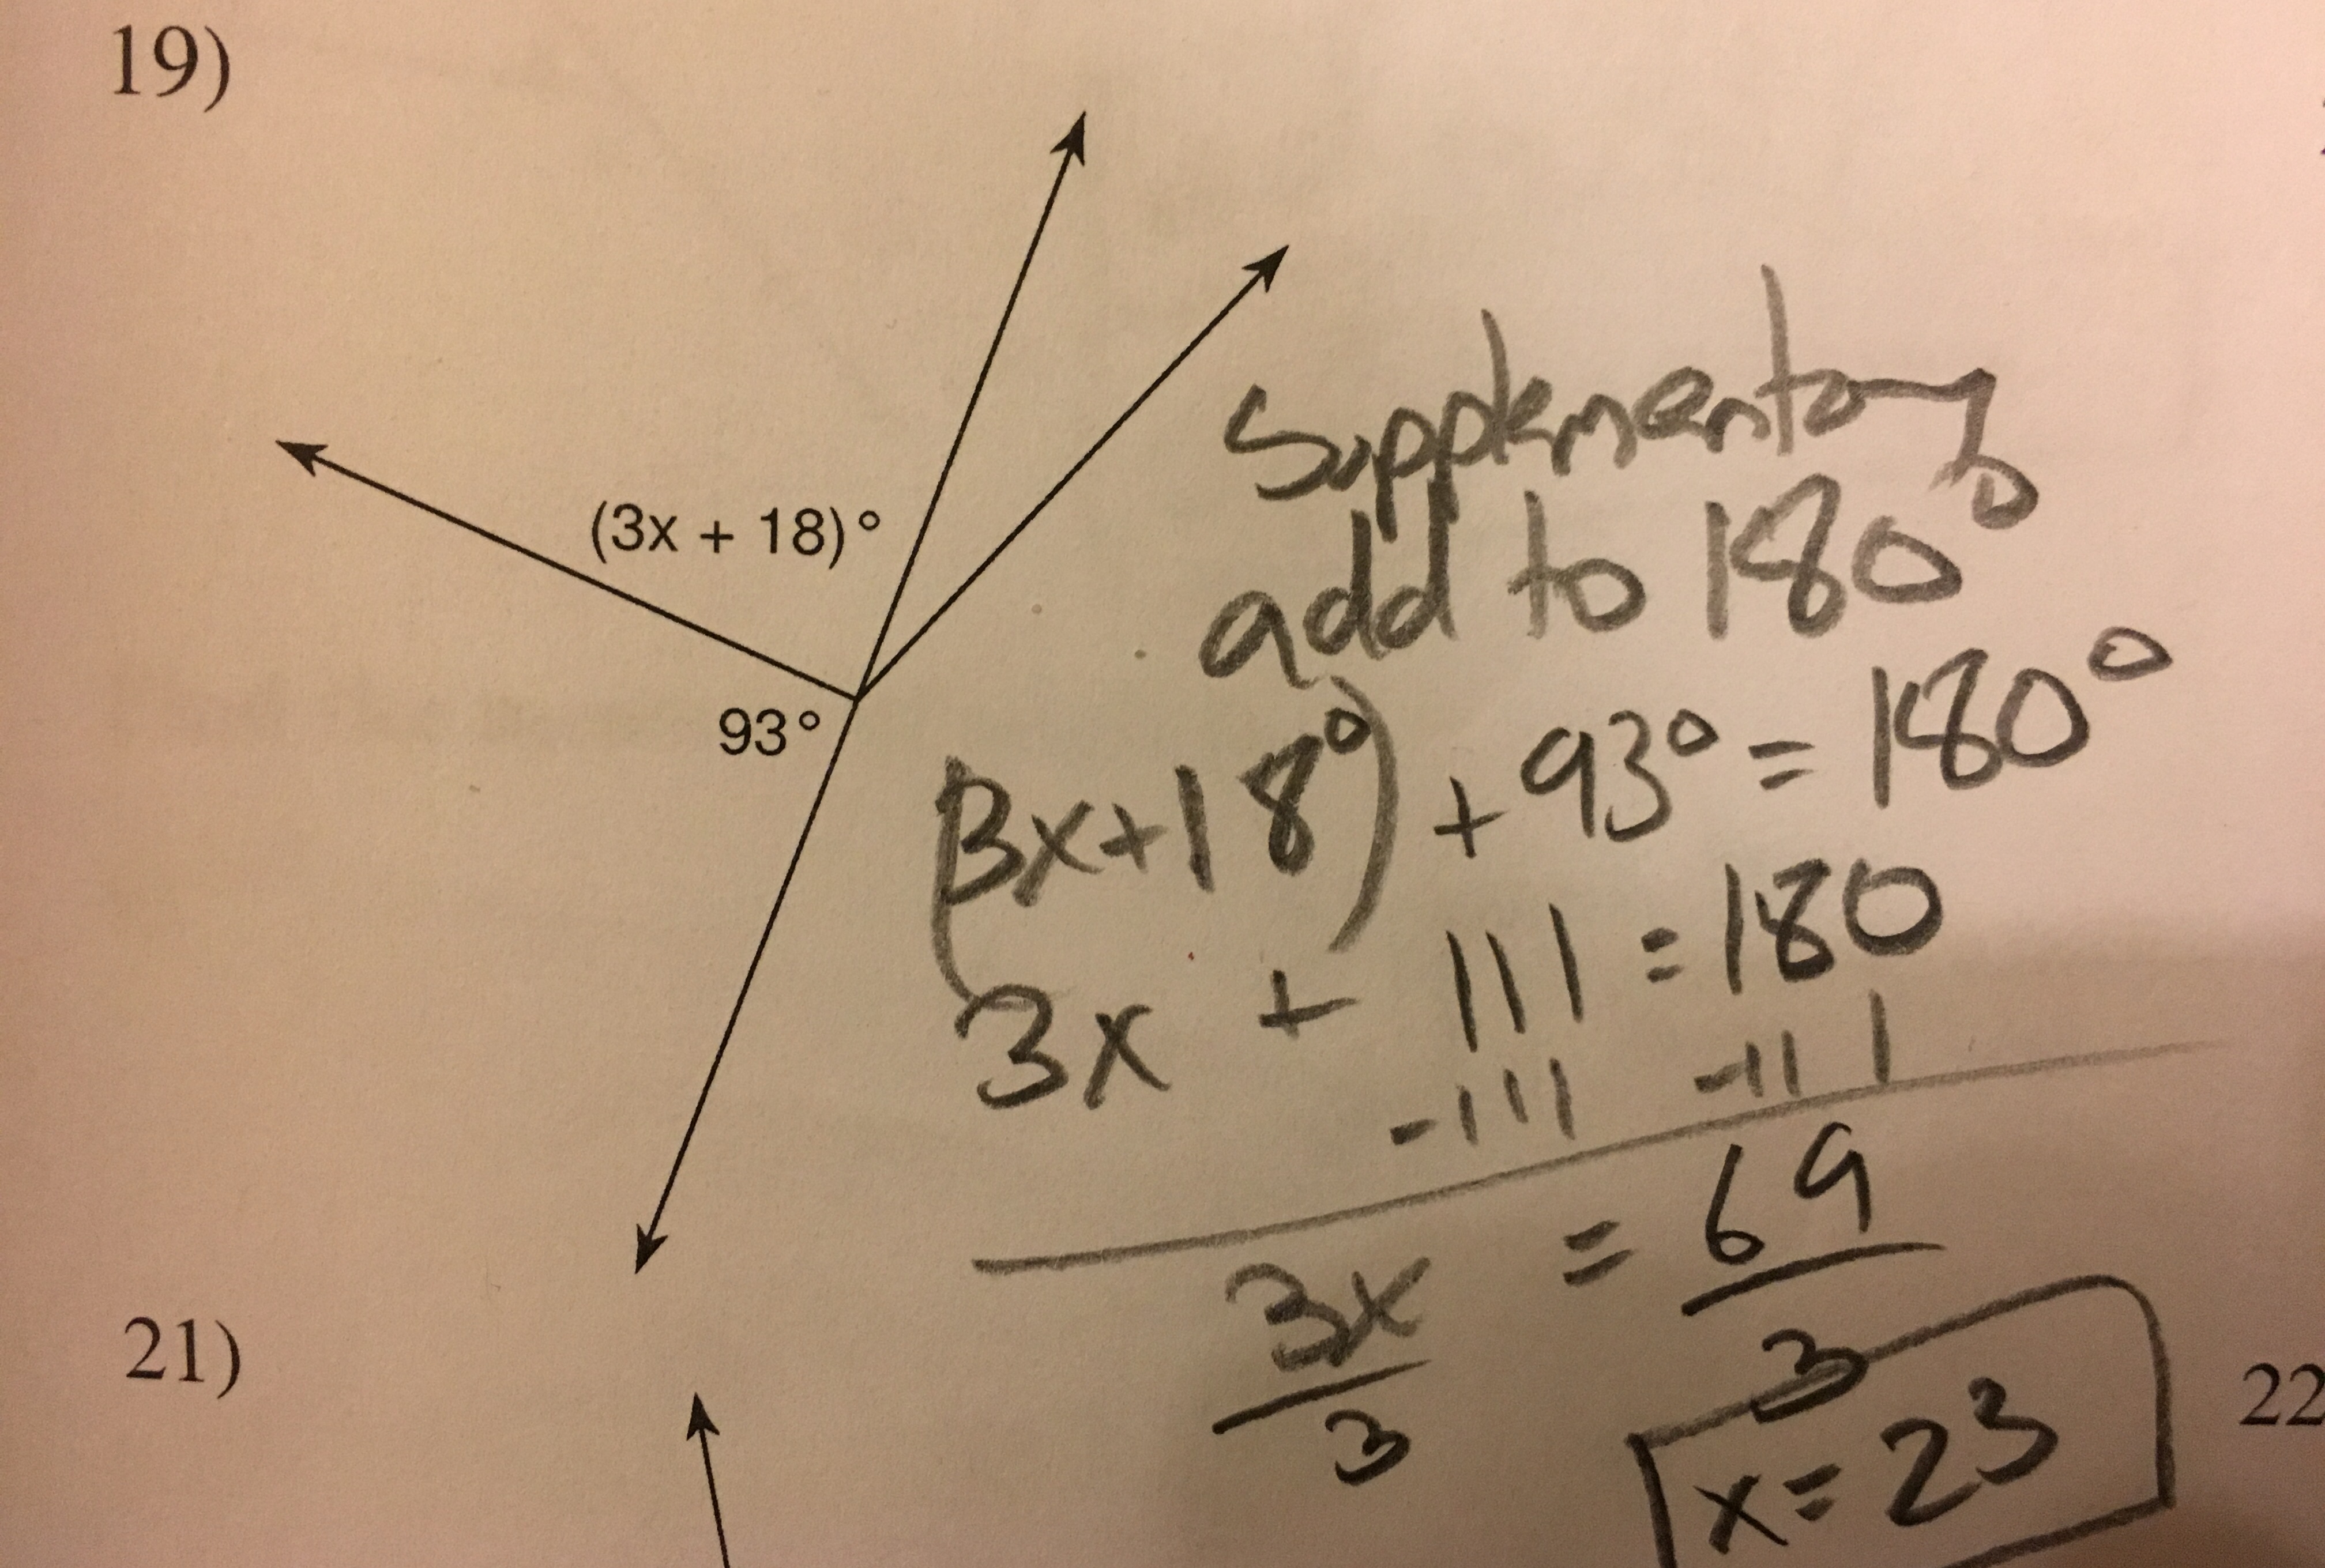 19)
(3x + 18)°
93°
Supplementary
add to 180°
(3x+18°) + 93° = 180°
3x + 111 = 180
-111 -111
3x = 69
3 3
x = 23
21)
22